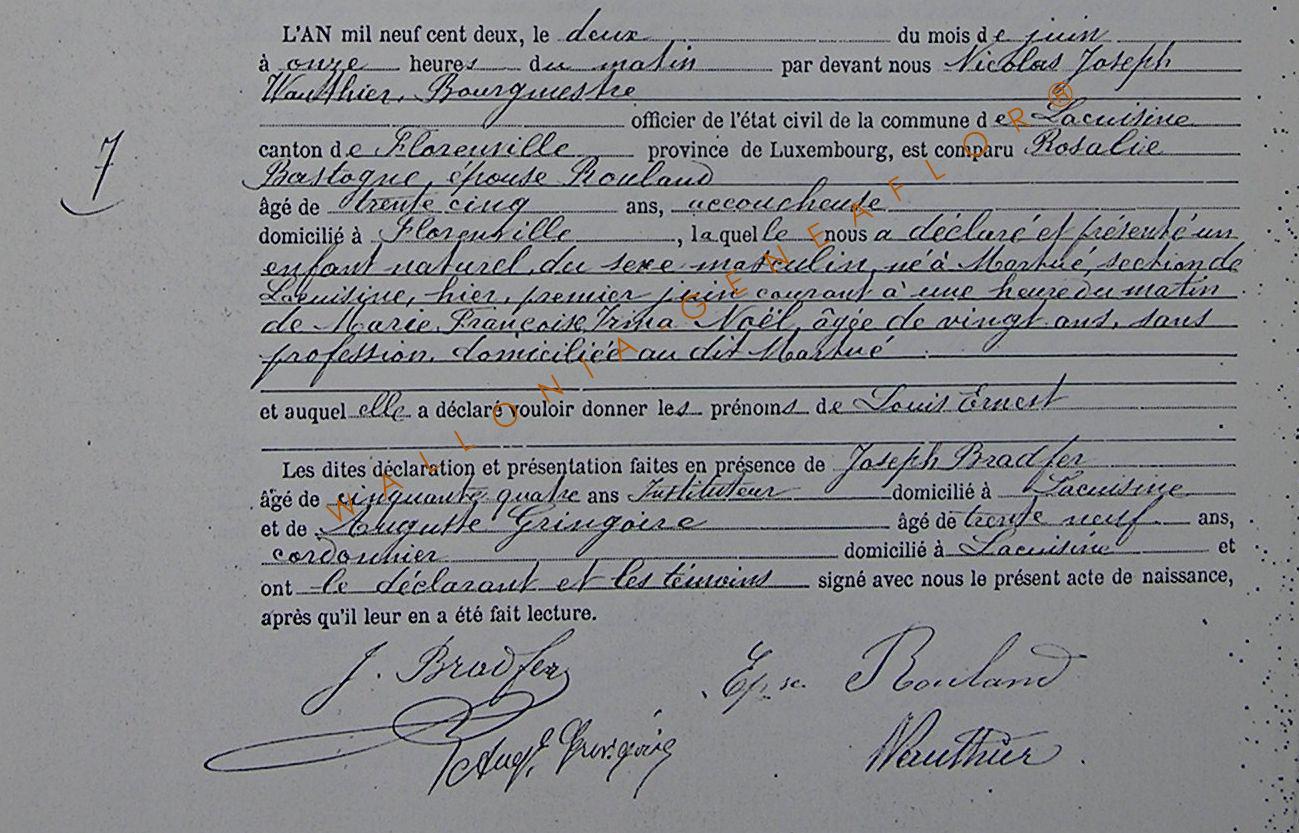 L'AN mil neuf cent deux, le deux du mois de juin
à onze heures du matin par devant nous Nicolas Joseph
Wauthier, Bourgmestre
officier de l'état civil de la commune de Lacuisine
canton de Florenville province de Luxembourg, est comparu Rosalie
Bastogne, épouse Rouland
7
âgé de trente cinq ans, accoucheuse
domicilié à Florenville, laquelle nous a déclaré et présenté un
enfant naturel, du sexe masculin, né à Martué, section de
Lacuisine, hier, premier juin courant à une heure du matin
de Marie Françoise Irma Noël, âgée de vingt ans, sans
profession, domiciliée au dit Martué
et auquel elle a déclaré vouloir donner les prénoms de Louis Ernest
Les dites déclaration et présentation faites en présence de Joseph Bradfer
âgé de cinquante quatre ans Instituteur domicilié à Lacuisine
et de Auguste Gringoire âgé de trente neuf ans,
cordonnier domicilié à Lacuisine et
ont le déclarant et les témoins signé avec nous le présent acte de naissance,
après qu'il leur en a été fait lecture.
J. Bradfer Epse Rouland
Aug. Gringoire Wauthier
WALLONIA-GENEAFLOR®